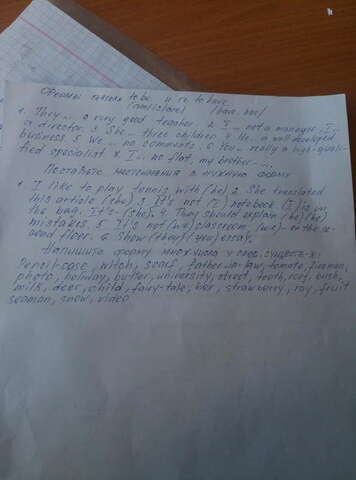 Формы глагола to be и to have
(am/is/are) (have, has)
1. They... a very good teacher. 2. I... not a manager, I...
a director. 3. She... three children. 4. He... a well developed
business. 5. We... no comments. 6. You... really a high-quali-
fied specialist. 7. I... no flat, my brother...
Поставьте местоимения в нужную форму
1. I like to play tennis with (he). 2. She translated
this article (she). 3. It's not (I) notebook. (I) is in
the bag. It's - (she). 4. They should explain (he) (he)
mistakes. 5. It's not (we) classroom, (we) - on the se-
cond floor. 6. Show (they) (you) essay.
Напишите форму множ. числа у след. существ-х:
Pencil-case, witch, scarf, father-in-law, tomato, fireman,
photo, holiday, butcher, university, street, tooth, roof, bush,
milk, deer, child, fairy-tale, box, strawberry, ray, fruit
seaman, snow, video